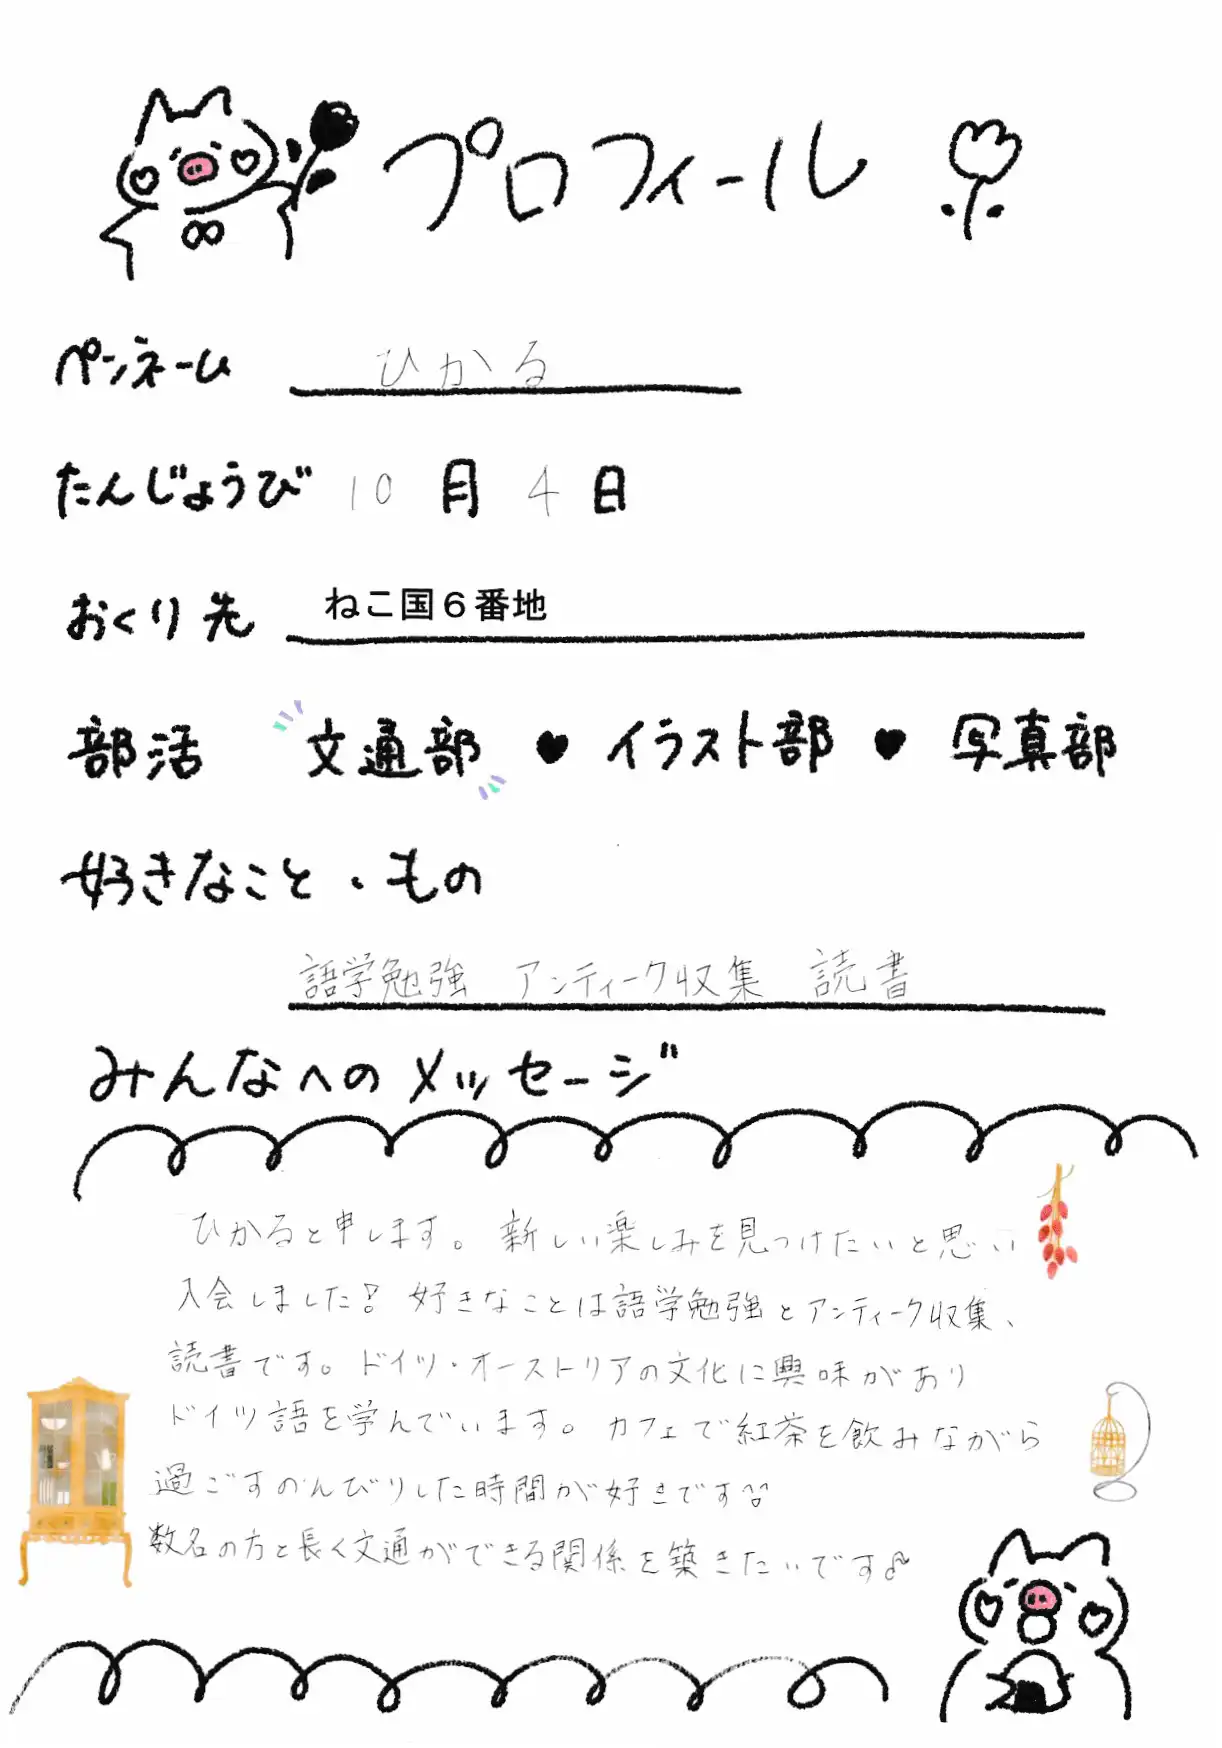 プロフィール
ペンネーム ひかる
たんじょうび 10 月 4 日
おくり先 ねこ国６番地
部活 文通部 ♥ イラスト部 ♥ 写真部
好きなこと・もの
語学勉強 アンティーク収集 読書
みんなへのメッセージ
ひかると申します。新しい楽しみを見つけたいと思い
入会しました! 好きなことは語学勉強とアンティーク収集、
読書です。ドイツ・オーストリアの文化に興味があり
ドイツ語を学んでいます。カフェで紅茶を飲みながら
過ごすのんびりした時間が好きです
数名の方と長く文通ができる関係を築きたいです♪